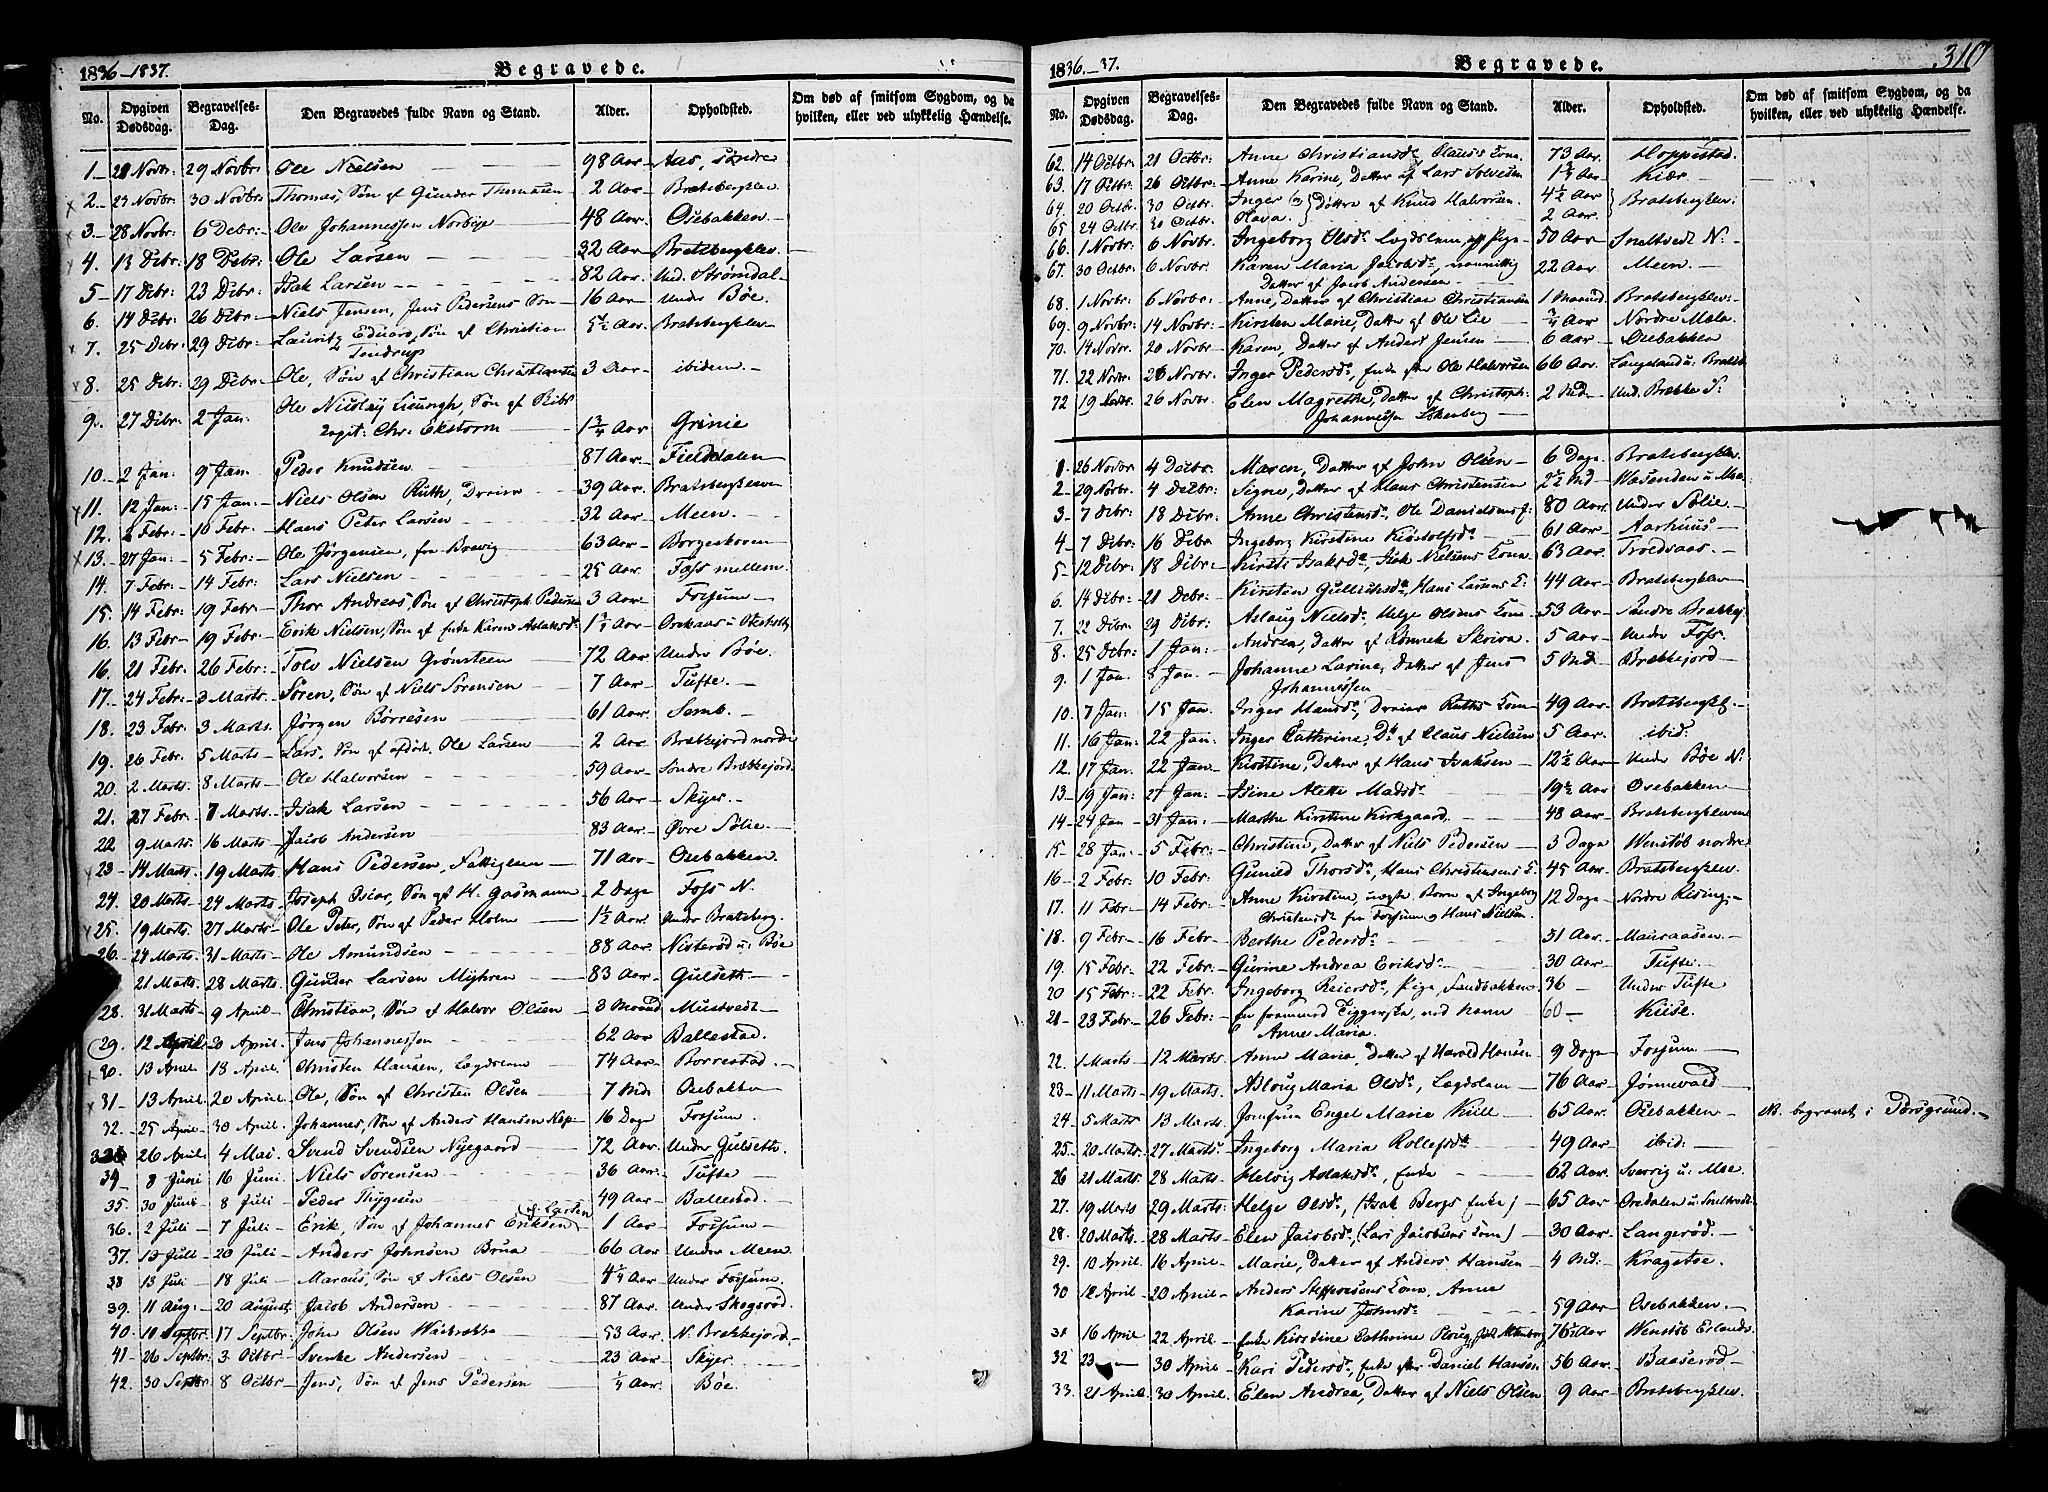 1836–1837. Begravede.
No. Opgiven Dødsdag. Begravelses-Dag. Den Begravedes fulde Navn og Stand. Alder. Opholdsted. Om død af smitsom Sygdom, og da hvilken, eller ved ulykkelig Hændelse.
1 28 Novbr: 29 Novbr: Ole Nielsen 98 Aar Aas, søndre
2. 23 Novbr: 30 Novbr: Thomas, Søn af Gunder Thomasen 2 Aar Bratsbergklev
3. 28 Novbr: 6 Debr: Ole Johannessen Norbye 48 Aar Osebakken
4. 13 Debr: 18 Debr: Ole Larsen 32 Aar Bratsbergklev.
5 17 Debr: 23 Debr: Isak Larsen 82 Aar. Und. Strømdal
6. 14 Debr: 26 Debr: Niels Jensen, Jens Pedersens Søn 16 Aar Under Bøe.
7. 25 Debr: 29 Debr: Lauritz Eduard, Søn af Christian
Tendrup 5½ Aar. Bratsbergklev
8. 25 Debr: 29 Debr: Ole, Søn af Christian Christiansen 3 Aar ibidem.
9. 27 Debr: 2 Jan: Ole Nicolay Søn af
Chr: Ekstorm 1¾ Aar Grinie
10. 2 Jan: 9 Jan: Peder Knudsen 87 Aar. Fielddalen
11. 12 Jan: 15 Jan: Niels Olsen Ruth, Dreier 39 Aar. Bratsbergkleven
12. 2 Febr: 10 Febr: Hans Peter Larsen 32 Aar. Meen
13. 27 Jan: 5 Febr: Ole Jørgensen, fra Brevig 63 Aar. Borgeskoven
14. 7 Febr: 14 Febr: Lars Nielsen 25 Aar. Foss mellem.
15. 14 Febr: 19 Febr: Thor Andreas, Søn af Christoph Pedersen 3 Aar Fossum
16. 13 Febr 19 Febr: Erik Nielsen, Søn af Enke Karen Aslaksdr.
16 21 Febr: 26 Febr: Tolv Nielsen Grønsteen 72 Aar Under Bøe.
17. 24 Febr: 3 Marts. Søren, Søn af Niels Sørensen 7 Aar Tufte.
18. 23 Febr: 3 Marts. Jørgen Børresen 61 Aar. Semb.
19. 26 Febr: 5 Marts Lars, Søn af afdøde Ole Larsen 2 Aar Brækkejord nordre
20. 2 Marts. 8 Marts Ole Halvorsen 59 Aar Søndre Brækkejord.
21. 27 Febr. 7 Marts. Isak Larsen 56 Aar Skyer.
22 9 Marts. 16 Marts. Jacob Andersen 83 Aar. Øvre Sølie.
23 14 Marts. 19 Marts. Hans Pedersen, Fattiglem 71 Aar Osebakken.
24. 20 Marts. 24 Marts. Joseph Oscar, Søn af H. Gasmann 2 Dage Foss N.
25. 19 Marts. 27 Marts Ole Peter, Søn af Peder Holm 1½ Aar. Under Bratsberg.
26. 24 Marts. 31 Marts Ole Amundsen 88 Aar. Nisterød u: Bøe
21 Marts. 28 Marts. Gunder Larsen Myhren 83 Aar. Gulseth
28. 31 Marts 9 April Christian, Søn af Halvor Olsen 3 Maand Mustvedt
29. 12 April 20 April. Jens Johannessen 62 Aar Ballestad.
30. 13 April 18 April. Christen Hansen, Lægdslem 74 Aar. Borrestad.
31 13 April 20 April. Ole, Søn af Christen Olsen 7 Md: Osebakken
32. 25 April 30 April. Johannes, Søn af Anders Hansen 16 Dage Fossum.
26 April. 4 Mai. Svend Svendsen Nyegaard 72 Aar. Under Gulseth.
34 8 Juni 16 Juni Niels Sørensen 36 Aar. Tufte
35. 30 Juni 8 Juli Peder Thygesen 49 Aar Ballestad.
36. 2 Juli 7 Juli Erik, Søn af Johannes Eriksen 1 Aar Fossum
37. 13 Juli 20 Juli Anders Johnsen Brua 66 Aar Under Meen
38 13 Juli 18 Juli Marcus, Søn af Niels Olsen 4¼ Aar Under Fossum.
39. 11 Aug: 20 August. Jacob Andersen 87 Aar Under Skogsrød.
40. 10 Septbr: 17 Septbr: John Olsen 53 Aar. N. Brækkejord.
41. 26 Septbr: 3 Octbr Svenke Andersen 23 Aar Skyer
42. 30 Septbr. 8 Octbr Jens, Søn af Jens Pedersen ¼ Aar. Bøe.
1836–37. Begravede. 310
No. Opgiven Dødsdag. Begravelses-Dag. Den Begravedes fulde Navn og Stand. Alder. Opholdsted. Om død af smitsom Sygdom, og da hvilken, eller ved ulykkelig Hændelse.
62. 14 Octbr: 21 Octbr: Anne Christiansdr. Clauss Kone. 73 Aar. Hoppestad.
63. 17 Octbr: 26 Octbr: Anne Karine, Datter af Lars Solvesen Aar Kiær
64. 20 Octbr. 30 Octbr: Inger } Døttre af Knud Halvorsen. 4½ Aar } Bratsbergklev.
65 24 Octbr. 30 Octbr: Olava. 2 Aar.
66. 1 Novbr: 6 Novbr. Ingeborg Olsdr. Lægdslem, Pige 50 Aar Sneltvedt N:
67. 30 Octbr: 6 Novbr. Karen Maria Jacobsdr,
Datter af Jacob Andersen 22 Aar. Meen
68. 1 Novbr: 6 Novbr: Anne, Datter af Christian Christiansen 1 Maaned Bratsbergklev:
69. 9 Novbr: 14 Novbr: Kirsten Marie, Datter af Ole Lie ¾ Aar Nordre Mæla.
70. 14 Novbr. 20 Novbr: Karen, Datter af Anders Jensen 6 Aar Osebakken
71. 22 Novbr. 26 Novbr. Inger Pedersdr, Enke efter Ole Halvorsen 66 Aar. Langeland u: Bratsb:
72 19 Novbr: 26 Novbr. Elen Magrethe, Datter af Christoph:
Johannessen 2 Md: Und. Brække S:
1. 26 Novbr 4 Decbr. Maren, Datter af John Olsen 6 Dage Bratsbergklev.
2 29 Novbr: 4 Decbr: Signe, Datter af Hans Christensen 2½ Md
3 7 Debr: 18 Debr: Anne Christensdr, Ole Danielsens 80 Aar. Under Sølie
4 7 Debr: 16 Debr Ingeborg Kirstine Kiøstolfsdr. 61 Aar Aarhuus
5 12 Debr: 18 Debr: Kirsti Isaksdr, Isak Nielsens Kone 63 Aar. Troldsaas.
6. 14 Debr: 21 Debr: Kirsten Gulliksdr, Hans Larsens K: 44 Aar Bratsbergklev
7. 22 Debr: 29 Debr: Aslaug Nielsdr. Helge Olsens Kone 53 Aar Søndre Brækkej
8. 25 Debr: 1 Jan: Andrea, Datter af Skrira. 5 Aar Under Foss.
9. 1 Jan. 8 Jan. Johanne Larine, Datter af Jens
Johannessen 5 Md: Brækkejord
10. 7 Jan: 15 Jan. Inger Hansdr, Dreier Ruths Kone 49 Aar. Bratsbergkl.
11. 16 Jan: 22 Jan: Inger Cathrine, Dr af Claus Nielsen 5 Aar. ibid:
12. 17 Jan: 22 Jan Kirstine, Datter af Hans Isaksen 12½ Aar Under Bøe N:
13 19 Jan: 27 Jan: Isine Alette Madsdr. 19½ Aar Osebakken
14 24 Jan 31 Jan: Marthe Kirstine Kirkgaard. 48 Aar. Bratsbergklevene
15 28 Jan: 5 Febr: Christine, Datter af Niels Pedersen 3 Dage Wenstøb nordre
16 2 Febr: 10 Febr. Gunild Thorsdr, Hans Christensens K. 45 Aar. Bratsbergklev.
17. 11 Febr 14 Febr: Anne Kirstine, uægte Barn af Ingeborg
Christensdr fra Fossum og Hans Nielsen. 12 Dage Nordre Rising.
18. 9 Febr 16 Febr Berthe Pedersdr 51 Aar. Mauraasen.
19. 15 Febr. 22 Febr: Gurine Andrea Eriksdr. 30 Aar Tufte.
20 15 Febr: 22 Febr. Ingeborg Reiersdr, Pige, Sandbakken 36 Under Tufte
21 23 Febr. 26 Febr: En fremmed Tiggerske, ved Navn
Anne Maria. 60 Kiise.
22. 1 Marts 12 Marts. Anne Maria, Datter af Harald Hansen 9 Dage Fossum
23 11 Marts 19 Marts. Aslaug Maria Olsdr, Lægdslem 76 Aar Jønnevald
24 5 Marts 13 Marts. Jomfrue Engel Marie Kiill 65 Aar. Osebakken NB. begravet i Porsgrund.
25. 20 Marts. 27 Marts: Ingeborg Maria Rollefsdr. 49 Aar ibid:
26 21 Marts. 28 Marts Helvig Aslaksdr, Enke 62 Aar. Sverrig u: Mæe
27. 19 Marts 29 Marts: Helge Olsdr, (Isak Bergs Enke) 65 Aar Oredalen u: Sneltvedt
28. 20 Marts. 28 Marts Elen Jacobsdr, (Lars Jacobsens Kone) 30 Aar Langerød.
29. 10 April 16 April Marie, Datter af Anders Hansen 4 Md: Kragetoe.
30 12 April 20 April Anders Steffensens Kone, Anne
Karine Johnsdr. 59 Aar Osebakken.
31 16 April 22 April Enke Kirstine Cathrine Ploug, født Altenborg 76½ Aar Wenstøb Erlands.
32 23 30 April Kari Pedersdr, Enke efter Daniel Hansen 56 Aar Baaserød
33. 21 April. 30 April. Elen Andrea, Datter af Niels Olsen 9 Aar Bratsbergklev.